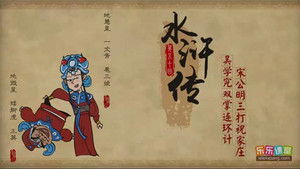 水浒传
宋公明三打祝家庄
吴学究双掌连环计
地慧星 一丈青 扈三娘
地微星 矮脚虎 王英
乐乐课堂